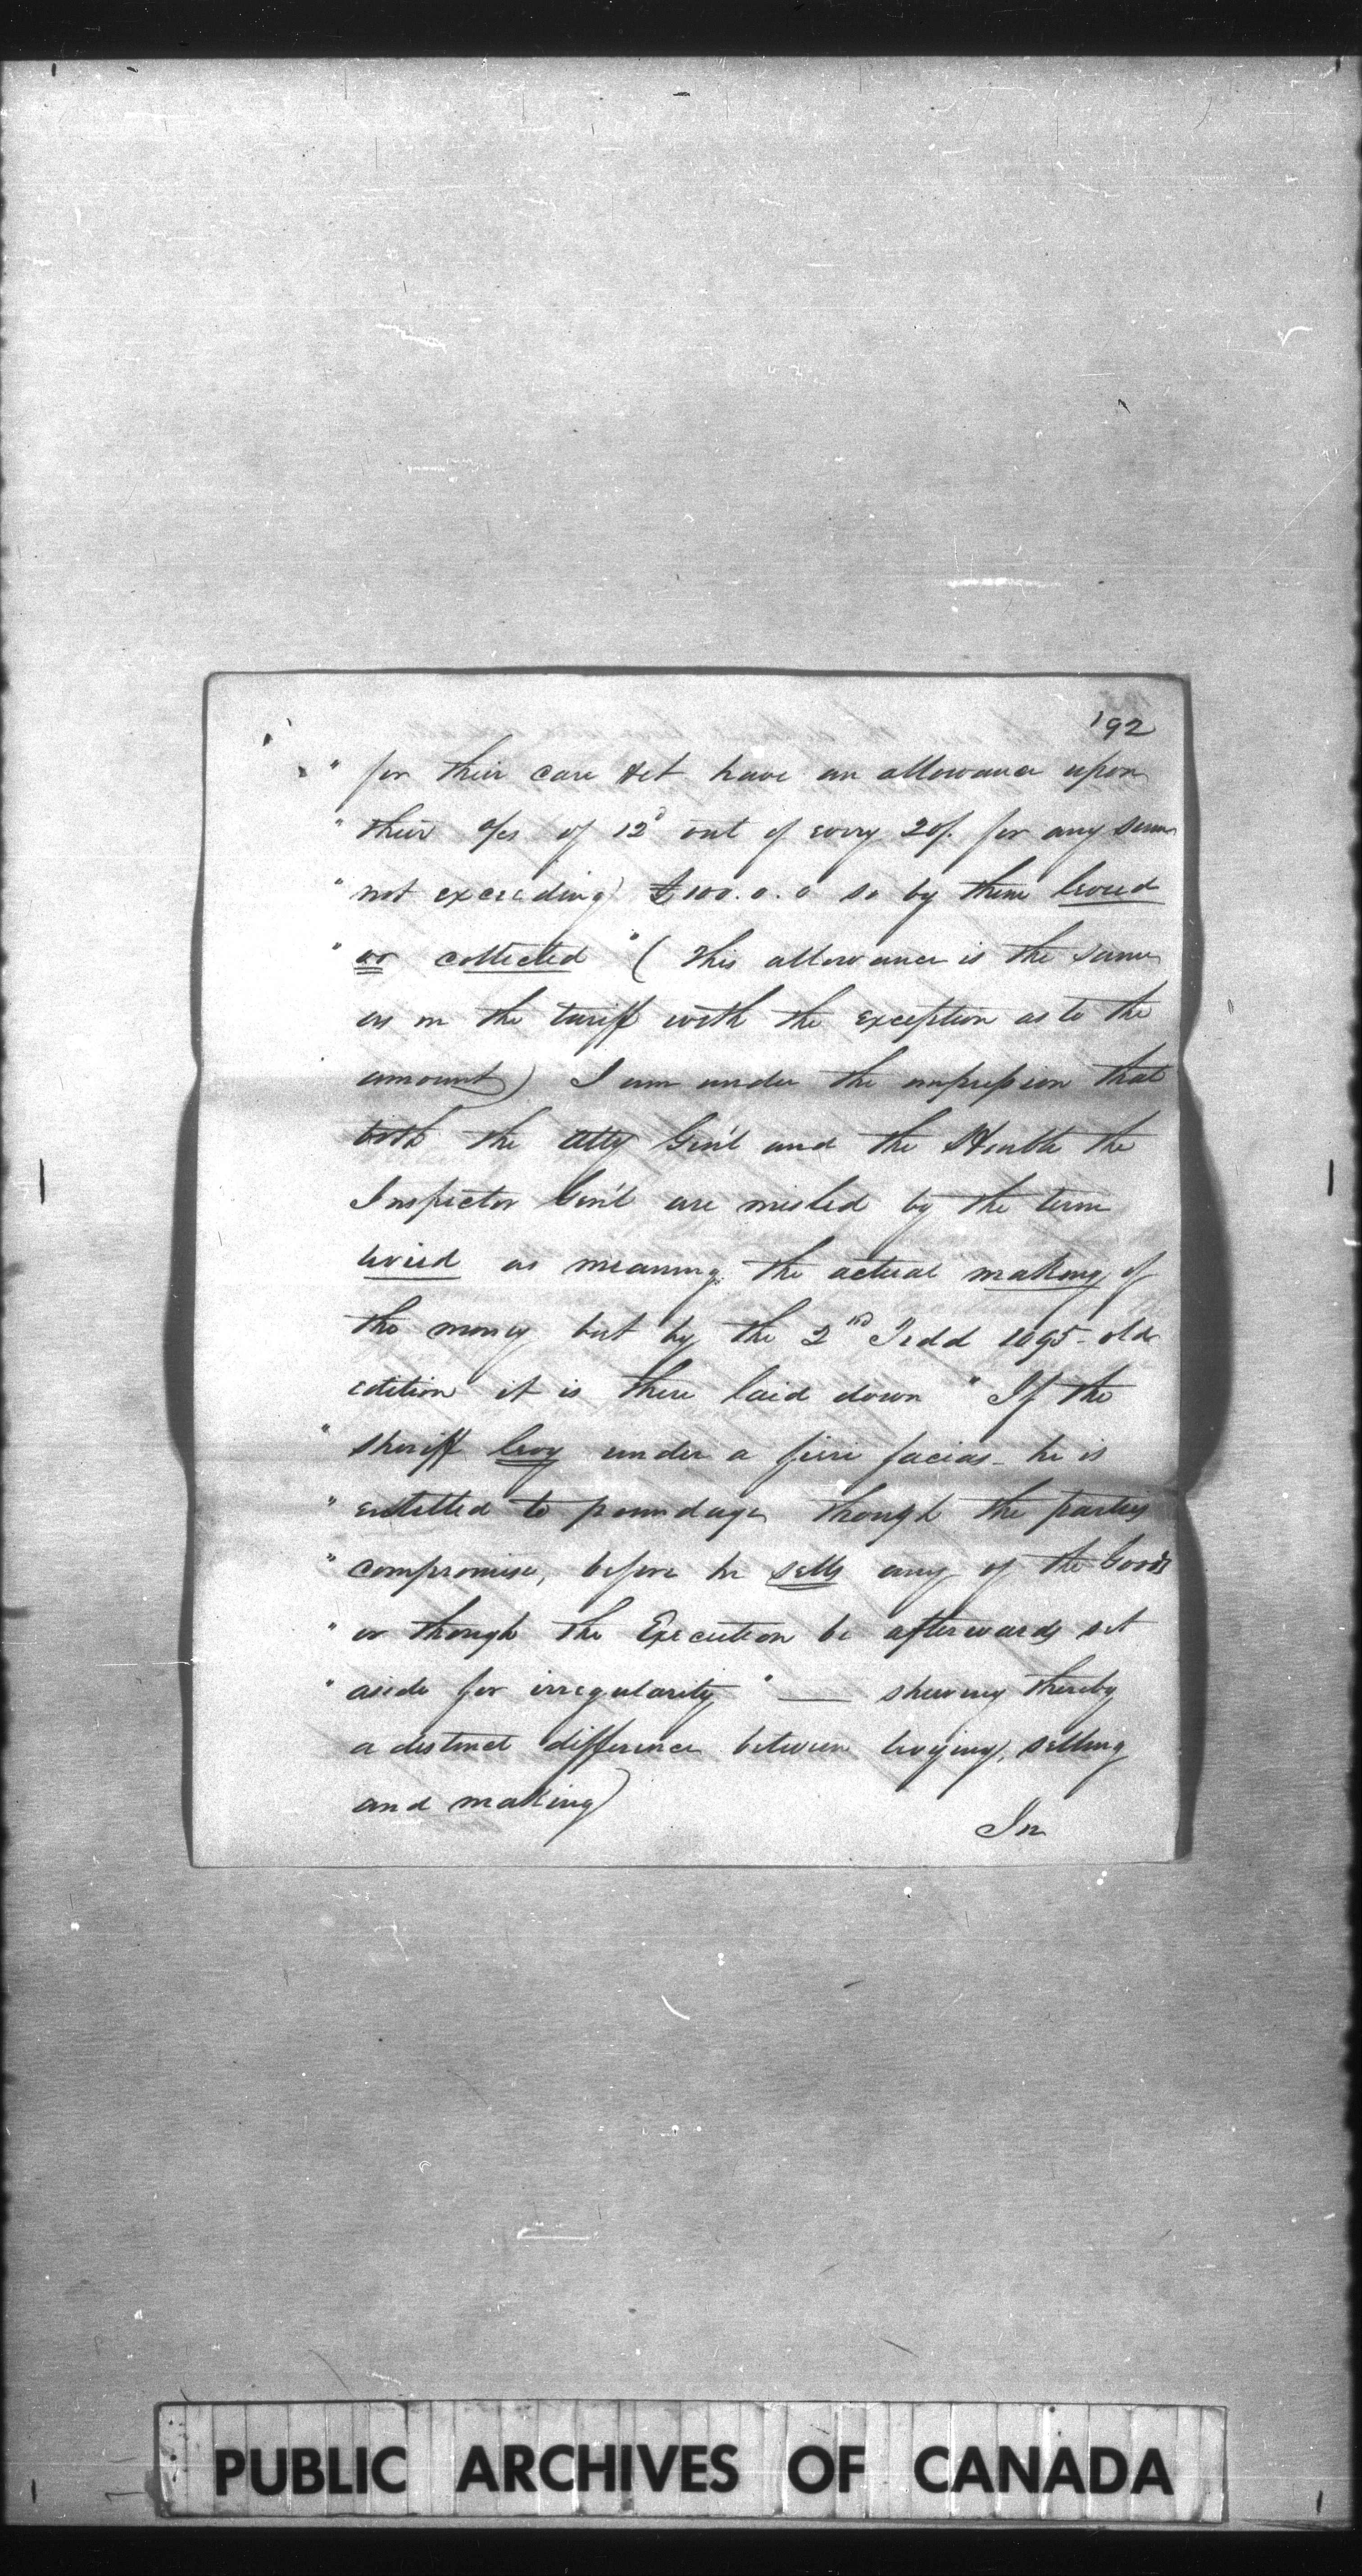 192
" for their care &ct have an allowance upon
" their a/cs of 12d out of every 20/. for any sum
" not exceeding £100.0.0 so by them levied
" or collected " ( This allowance is the same
as in the tariff with the exception as to the
amount) I am under the impression that
both the Atty Gen'l and the Honble the
Inspector Gen'l are misled by the term
levied as meaning the actual making of
the money but by the 2nd Tidd 1095 - old
edition it is there laid down " If the
" sheriff levy under a fieri facias - he is
" entitled to poundage though the parties
" compromise, before he sells any of the Goods
" or though the Execution be afterwards set
" aside for irregularity " — shewing thereby
a distinct difference between levying, selling
and making)
In
PUBLIC ARCHIVES OF CANADA